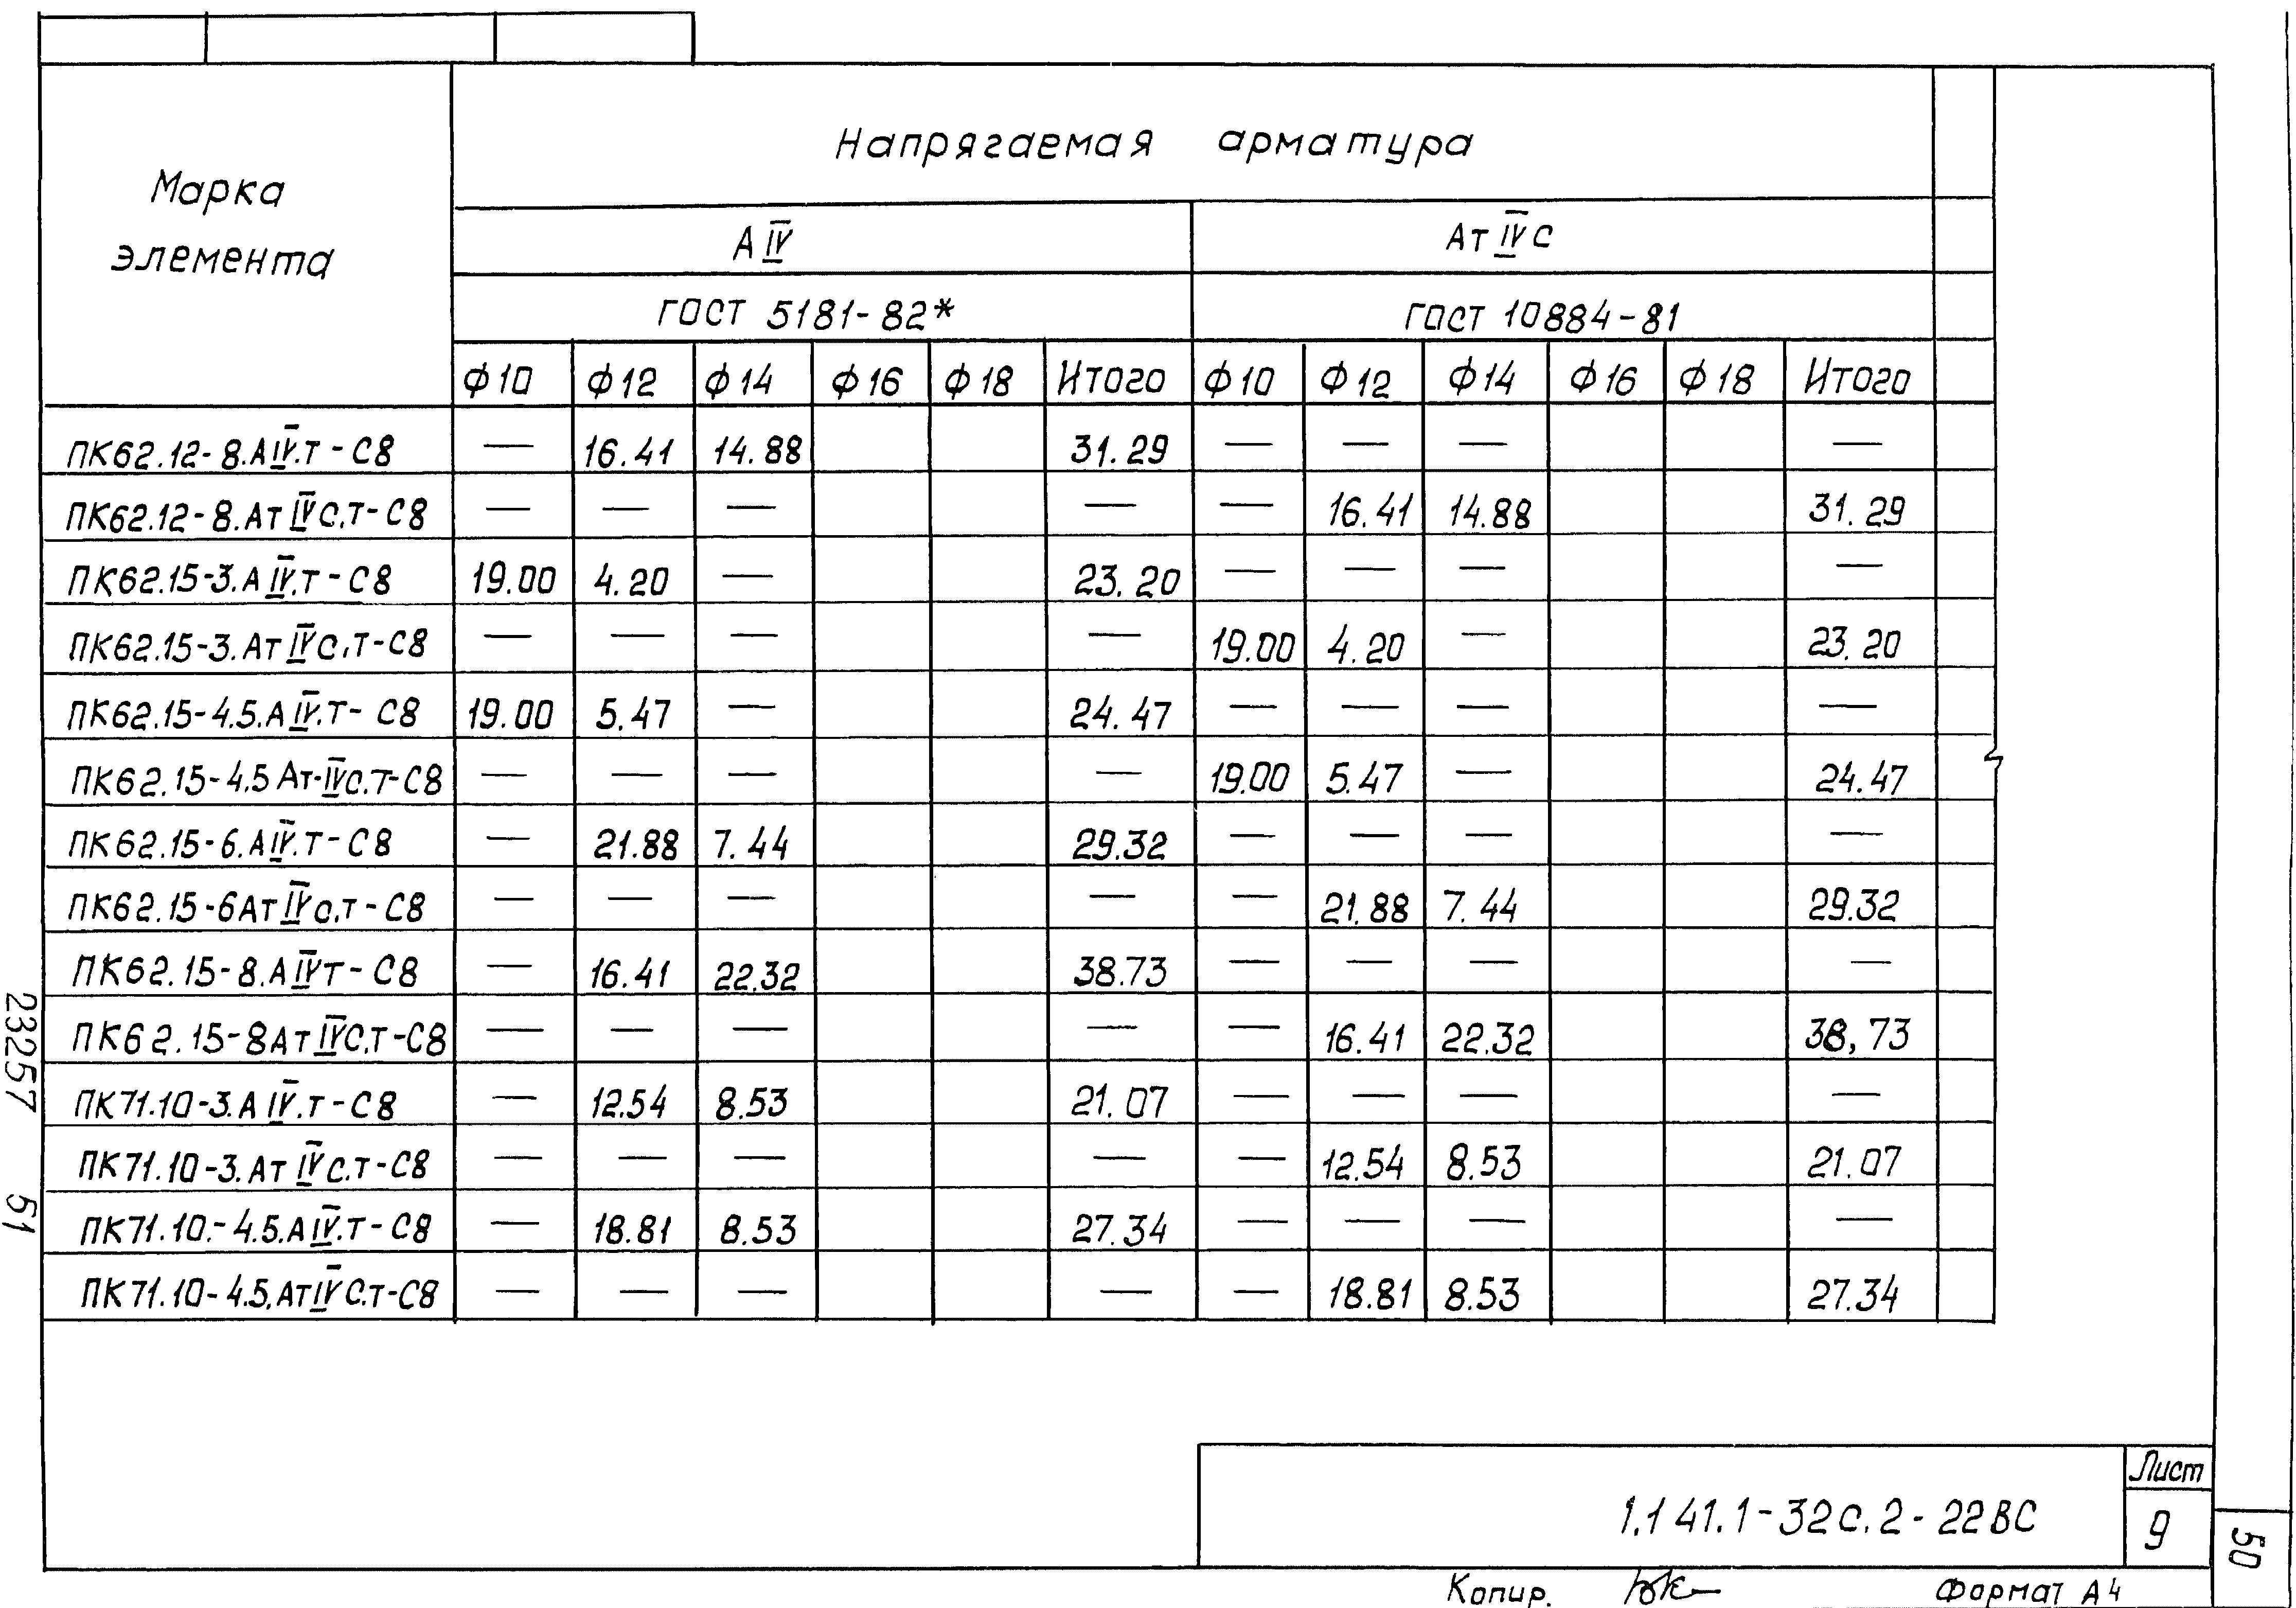 Марка элемента
Напрягаемая арматура
А IV
Ат IV С
ГОСТ 5181-82*
ГОСТ 10884-81
Ф10 Ф12 Ф14 Ф16 Ф18 Итого Ф10 Ф12 Ф14 Ф16 Ф18 Итого
ПК62.12-8.АIV.Т-С8 — 16.41 14.88 31.29 — — — —
ПК62.12-8.АтIVС.Т-С8 — — — — — 16.41 14.88 31.29
ПК62.15-3.АIV.Т-С8 19.00 4.20 — 23.20 — — — —
ПК62.15-3.АтIVС.Т-С8 — — — — 19.00 4.20 — 23.20
ПК62.15-4.5.АIV.Т-С8 19.00 5.47 — 24.47 — — — —
ПК62.15-4.5Ат-IVС.Т-С8 — — — — 19.00 5.47 — 24.47
ПК62.15-6.АIV.Т-С8 — 21.88 7.44 29.32 — — — —
ПК62.15-6АтIVС.Т-С8 — — — — — 21.88 7.44 29.32
ПК62.15-8.АIVТ-С8 — 16.41 22.32 38.73 — — — —
ПК62.15-8АтIVС.Т-С8 — — — — — 16.41 22.32 38,73
ПК71.10-3.АIV.Т-С8 — 12.54 8.53 21.07 — — — —
ПК71.10-3.АтIVС.Т-С8 — — — — — 12.54 8.53 21.07
ПК71.10.-4.5.АIV.Т-С8 — 18.81 8.53 27.34 — — — —
ПК71.10-4.5.АтIVС.Т-С8 — — — — — 18.81 8.53 27.34
23257 51
1.141.1-32с.2-22ВС
Лист
9
50
Копир.
Формат А4